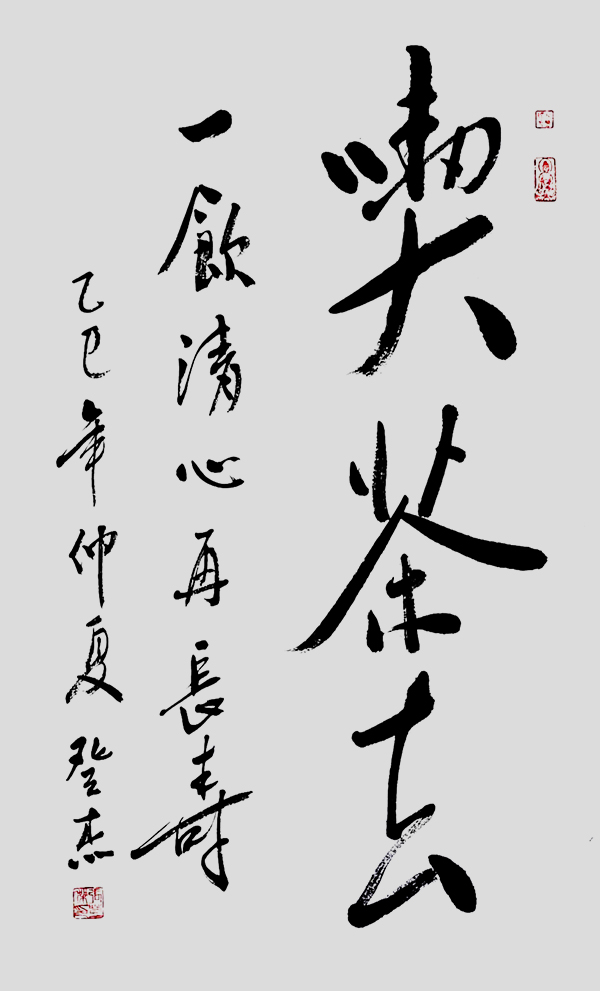 喫茶去
一飲清心再長壽
乙巳年仲夏登杰